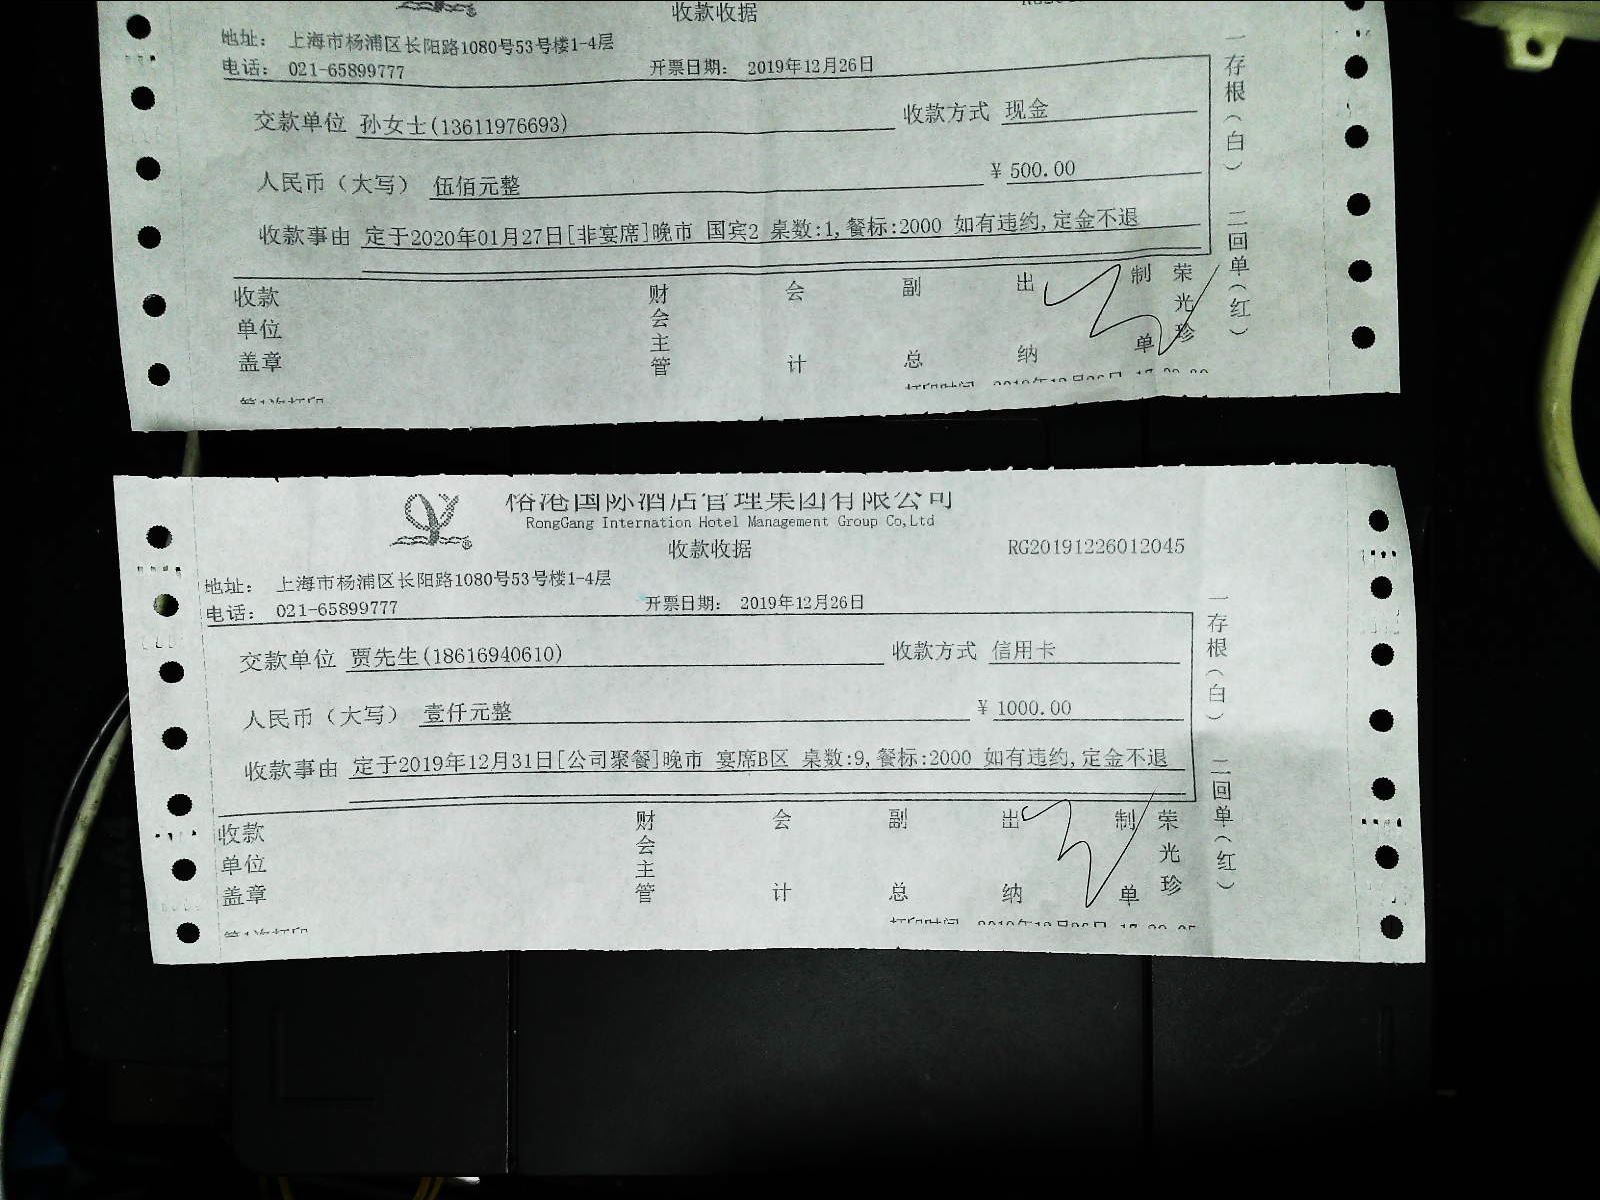 收款收据
地址： 上海市杨浦区长阳路1080号53号楼1-4层
电话： 021-65899777 开票日期： 2019年12月26日
交款单位 孙女士(13611976693) 收款方式 现金
人民币（大写） 伍佰元整 ¥ 500.00
收款事由 定于2020年01月27日[非宴席]晚市 国宾2 桌数:1,餐标:2000 如有违约,定金不退
收款单位盖章 财会主管 会计 副总 出纳 制单 荣光珍
一存根（白） 二回单（红）
国际酒店管理集团有限公司
RongGang Internation Hotel Management Group Co,Ltd
收款收据 RG20191226012045
地址： 上海市杨浦区长阳路1080号53号楼1-4层
电话： 021-65899777 开票日期： 2019年12月26日
交款单位 贾先生(18616940610) 收款方式 信用卡
人民币（大写） 壹仟元整 ¥ 1000.00
收款事由 定于2019年12月31日[公司聚餐]晚市 宴席B区 桌数:9,餐标:2000 如有违约,定金不退
收款单位盖章 财会主管 会计 副总 出纳 制单 荣光珍
一存根（白） 二回单（红）